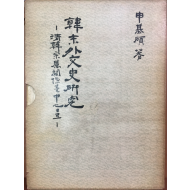 申基碩 著
韓末外交史研究
-淸韓宗屬關係를 中心으로-